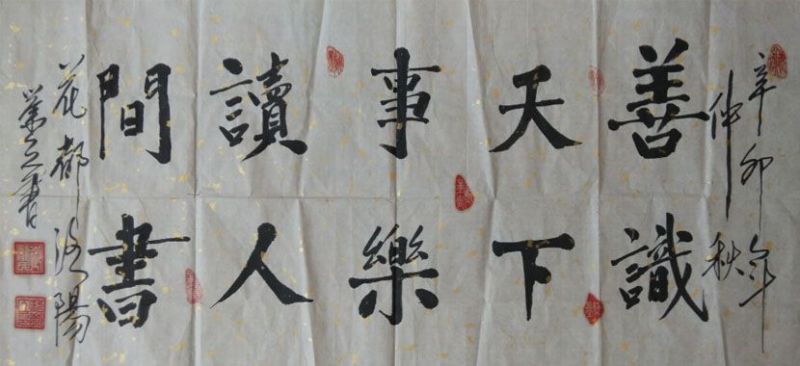 辛卯年
仲秋
善識
天下
事樂
讀人
間書
花都洛陽
書